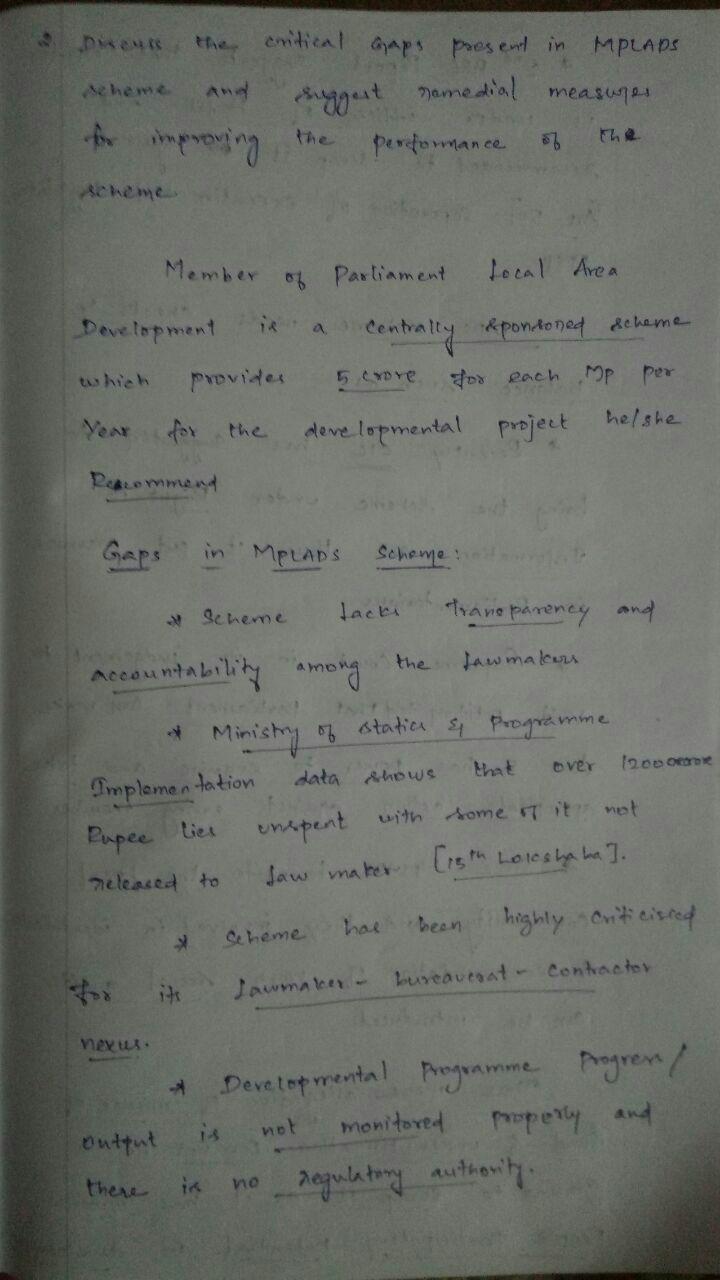 2. Discuss the critical Gaps present in MPLADS
scheme and suggest remedial measures
for improving the performance of the
scheme
Member of Parliament Local Area
Development is a centrally sponsored scheme
which provides 5 crore for each MP per
Year for the developmental project he/she
Recommend
Gaps in MPLAD'S Scheme:
* Scheme lacks Transparency and
accountability among the lawmakers
* Ministry of statics & Programme
Implementation data shows that over 12000 crore
Rupee lies unspent with some of it not
released to law maker [15th Lokshaba].
* Scheme has been highly criticised
for its lawmaker - bureaucrat - contractor
nexus.
* Developmental Programme Progress/
output is not monitored properly and
there is no regulatory authority.